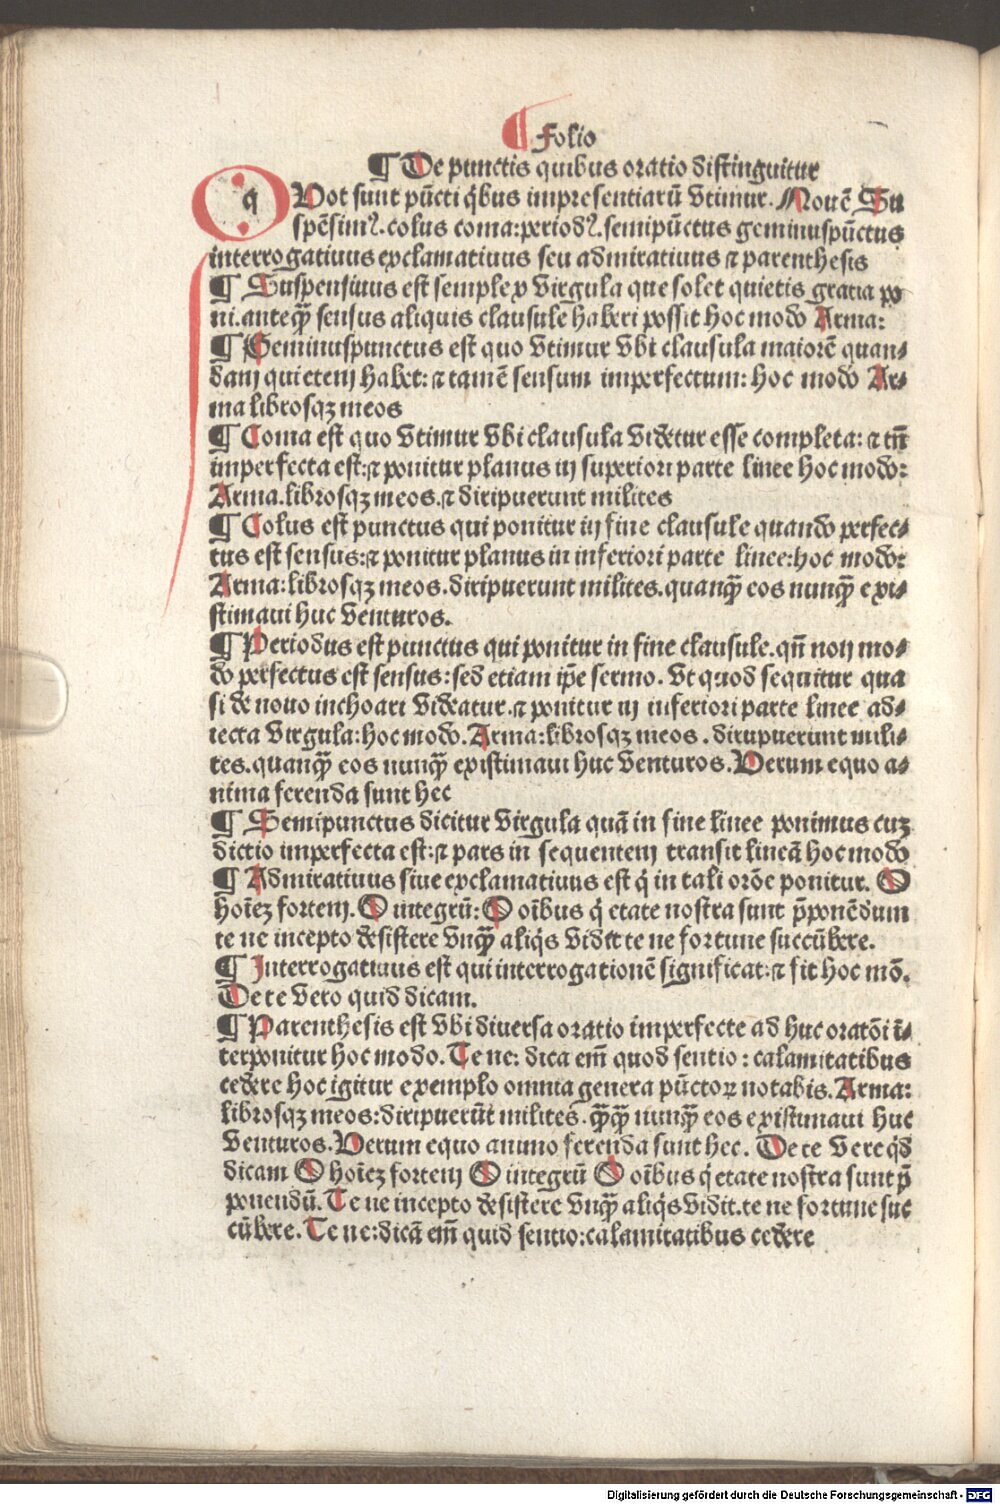 ¶ Folio
¶ De punctis quibus oratio distinguitur
q QVot sunt pūcti q̄bus impresentiarū vtimur. Nouē Su
spēsimꝰ. colus coma: periodꝰ. semipūctus geminuspūctus
interrogatiuus exclamatiuus seu admiratiuus ⁊ parenthesis
¶ Suspensiuus est semplex virgula que solet quietis gratia po
ni. anteq̄ȝ sensus aliquis clausule haberi possit hoc modo Arma:
¶ Geminuspunctus est quo vtimur vbi clausula maiorē quan⸗
dam quietem habet: ⁊ tamē sensum imperfectum: hoc modo Ar⸗
ma librosqȝ meos
¶ Coma est quo vtimur vbi clausula videtur esse completa: ⁊ tn̄
imperfecta est: ⁊ ponitur planus in superiori parte linee hoc modo:
Arma. librosqȝ meos. ⁊ diripuerunt milites
¶ Colus est punctus qui ponitur in fine clausule quando perfec⸗
tus est sensus: ⁊ ponitur planus in inferiori parte linee: hoc modo:
Arma: librosqȝ meos. diripuerunt milites. quanq̄ȝ eos nunq̄ȝ exi⸗
stimaui huc venturos.
¶ Periodus est punctus qui ponitur in fine clausule. qn̄ non mo⸗
do perfectus est sensus: sed etiam ip̄e sermo. vt quod sequitur qua
si de nouo inchoari videatur. ⁊ ponitur in inferiori parte linee ad⸗
iecta virgula: hoc modo. Arma: librosqȝ meos. dirupuerunt mili⸗
tes. quanq̄ȝ eos nunq̄ȝ existimaui huc venturos. Verum equo a⸗
nima ferenda sunt hec
¶ Semipunctus dicitur virgula quā in fine linee ponimus cuȝ
dictio imperfecta est: ⁊ pars in sequentem transit lineā hoc modo
¶ Admiratiuus siue exclamatiuus est q̄ in tali orōe ponitur. O
hoīeȝ fortem. O integrū: O oībus q̄ etate nostra sunt p̄ponēdum
te ne incepto desistere vnq̄ȝ aliq̄s vidit te ne fortune succūbere.
¶ Interrogatiuus est qui interrogationē significat: ⁊ fit hoc mō.
De te vero quid dicam.
¶ Parenthesis est vbi diuersa oratio imperfecte ad huc oratōi ī⸗
terponitur hoc modo. Te ne: dica em̄ quod sentio: calamitatibus
cedere hoc igitur exemplo omnia genera pūctoꝝ notabis. Arma:
librosqȝ meos: diripuerūt milites. q̄ȝq̄ȝ nunq̄ȝ eos existimaui huc
venturos. Verum equo animo ferenda sunt hec. De te vere q̄d
dicam O hoīeȝ fortem O integrū O oībus q̄ etate nostra sunt p̄
ponendū. Te ne incepto desistere vnq̄ȝ aliq̄s vidit. te ne fortune suc
cūbere. Te ne: dicā em̄ quid sentio: calamitatibus cedere
Digitalisierung gefördert durch die Deutsche Forschungsgemeinschaft - DFG